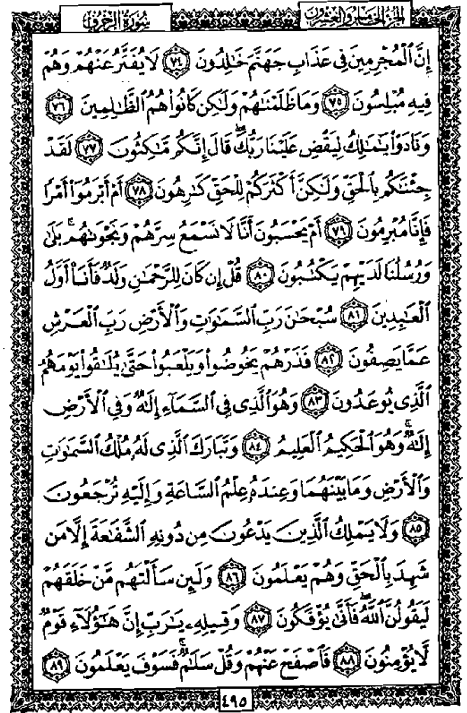 سُورَةُ الزُّخْرُفِ
الجُزْءُ الخَامِسُ وَالعِشْرُونَ
إِنَّ الْمُجْرِمِينَ فِي عَذَابِ جَهَنَّمَ خَٰلِدُونَ ﴿٧٤﴾ لَا يُفَتَّرُ عَنْهُمْ وَهُمْ
فِيهِ مُبْلِسُونَ ﴿٧٥﴾ وَمَا ظَلَمْنَٰهُمْ وَلَٰكِن كَانُوا۟ هُمُ الظَّٰلِمِينَ ﴿٧٦﴾
وَنَادَوْا۟ يَٰمَٰلِكُ لِيَقْضِ عَلَيْنَا رَبُّكَ ۖ قَالَ إِنَّكُم مَّٰكِثُونَ ﴿٧٧﴾ لَقَدْ
جِئْنَٰكُم بِالْحَقِّ وَلَٰكِنَّ أَكْثَرَكُمْ لِلْحَقِّ كَٰرِهُونَ ﴿٧٨﴾ أَمْ أَبْرَمُوٓا۟ أَمْرًا
فَإِنَّا مُبْرِمُونَ ﴿٧٩﴾ أَمْ يَحْسَبُونَ أَنَّا لَا نَسْمَعُ سِرَّهُمْ وَنَجْوَىٰهُم ۚ بَلَىٰ
وَرُسُلُنَا لَدَيْهِمْ يَكْتُبُونَ ﴿٨٠﴾ قُلْ إِن كَانَ لِلرَّحْمَٰنِ وَلَدٌ فَأَنَا۠ أَوَّلُ
الْعَٰبِدِينَ ﴿٨١﴾ سُبْحَٰنَ رَبِّ السَّمَٰوَٰتِ وَالْأَرْضِ رَبِّ الْعَرْشِ
عَمَّا يَصِفُونَ ﴿٨٢﴾ فَذَرْهُمْ يَخُوضُوا۟ وَيَلْعَبُوا۟ حَتَّىٰ يُلَٰقُوا۟ يَوْمَهُمُ
الَّذِي يُوعَدُونَ ﴿٨٣﴾ وَهُوَ الَّذِي فِي السَّمَاءِ إِلَٰهٌ وَفِي الْأَرْضِ
إِلَٰهٌ ۚ وَهُوَ الْحَكِيمُ الْعَلِيمُ ﴿٨٤﴾ وَتَبَارَكَ الَّذِي لَهُۥ مُلْكُ السَّمَٰوَٰتِ
وَالْأَرْضِ وَمَا بَيْنَهُمَا وَعِندَهُۥ عِلْمُ السَّاعَةِ وَإِلَيْهِ تُرْجَعُونَ
﴿٨٥﴾ وَلَا يَمْلِكُ الَّذِينَ يَدْعُونَ مِن دُونِهِ الشَّفَٰعَةَ إِلَّا مَن
شَهِدَ بِالْحَقِّ وَهُمْ يَعْلَمُونَ ﴿٨٦﴾ وَلَئِن سَأَلْتَهُم مَّنْ خَلَقَهُمْ
لَيَقُولُنَّ اللَّهُ ۖ فَأَنَّىٰ يُؤْفَكُونَ ﴿٨٧﴾ وَقِيلِهِۦ يَٰرَبِّ إِنَّ هَٰٓؤُلَاءِ قَوْمٌ
لَّا يُؤْمِنُونَ ﴿٨٨﴾ فَاصْفَحْ عَنْهُمْ وَقُلْ سَلَٰمٌ ۚ فَسَوْفَ يَعْلَمُونَ ﴿٨٩﴾
٤٩٥